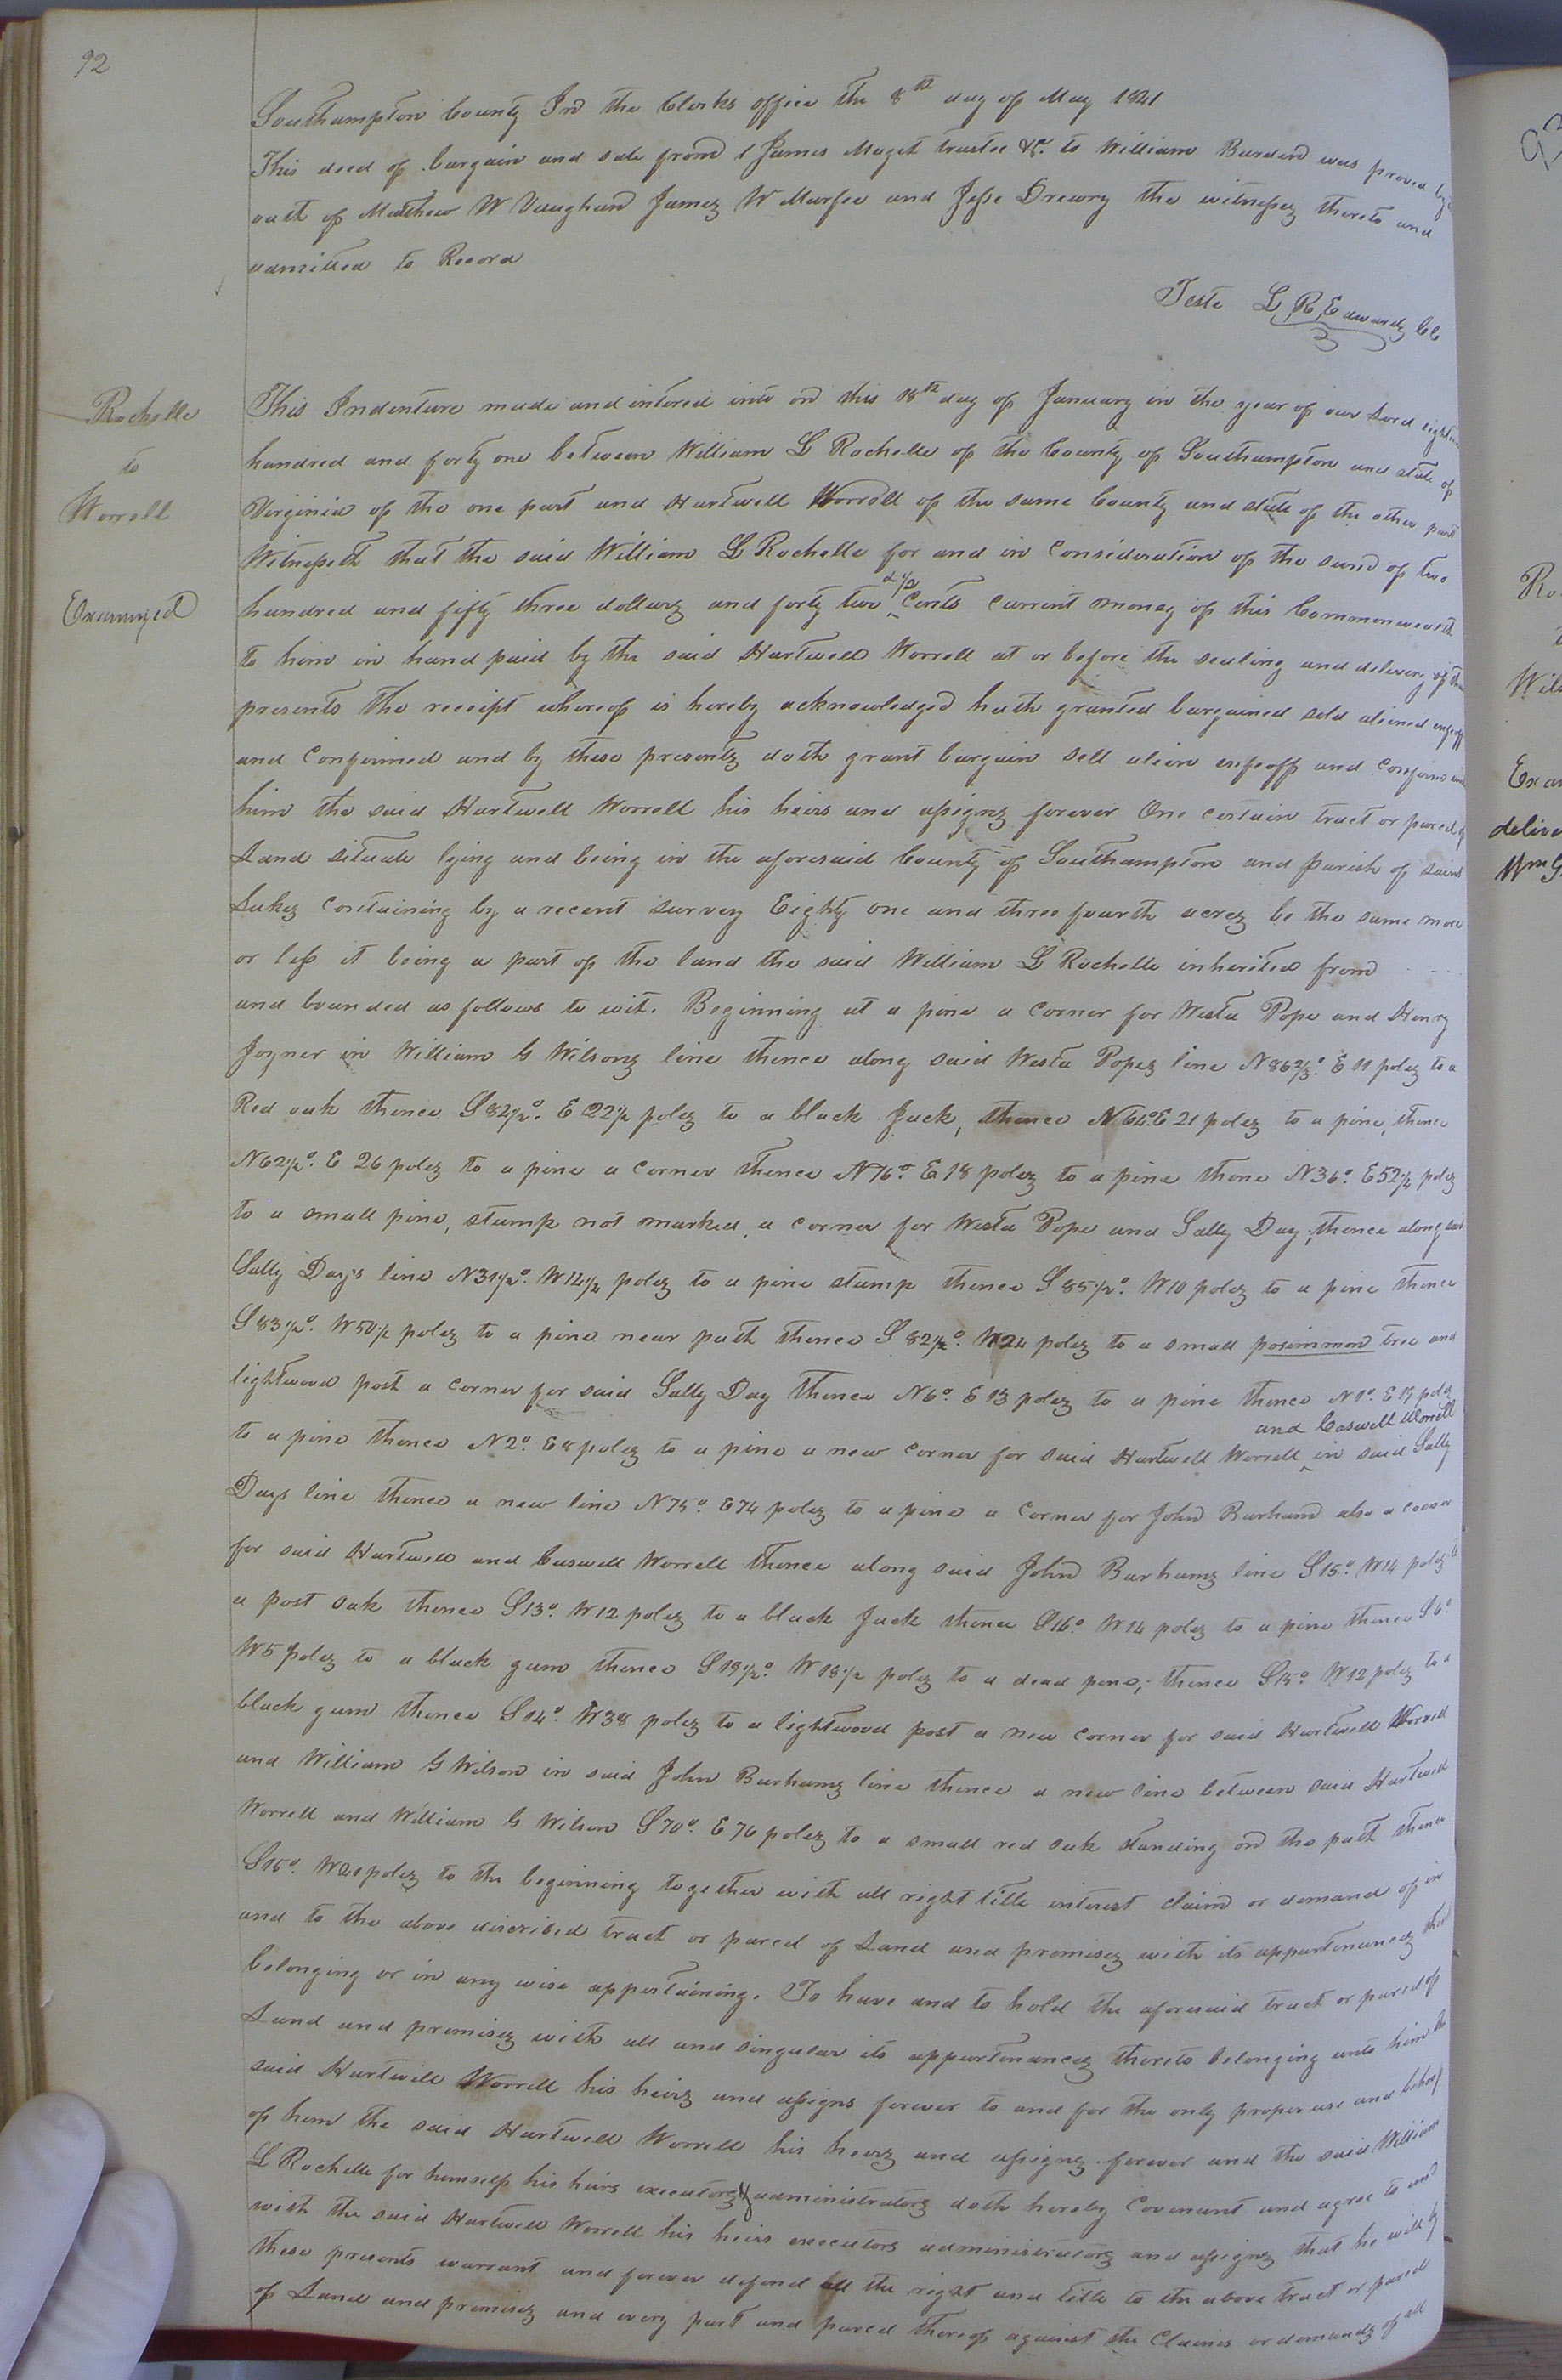 92
Southampton County In the Clerks office the 8th day of May 1841
This deed of bargain and sale from James Maget trustee &c. to William Barden was proved by
oath of Matthew W Vaughan James W Murfee and Jesse Drewry the witnesses thereto and
admitted to Record
Teste L R Edwards CC
Rochelle
to
Worrell
Examined
This Indenture made and intered into on this 18th day of January in the year of our Lord eighteen
hundred and forty one between William L Rochelle of the County of Southampton and state of
Virginia of the one part and Hartwell Worrell of the same County and state of the other part
Witnesseth that the said William L Rochelle for and in Consideration of the sum of two
hundred and fifty three dollars and forty two & 1/2 Cents current money of this Commonwealth
to him in hand paid by the said Hartwell Worrell at or before the sealing and delivery of these
presents the receipt whereof is hereby acknowledged hath granted bargained sold aliened enfeoff
and Confirmed and by these presents doth grant bargain sell alien enfeoff and Confirm unto
him the said Hartwell Worrell his heirs and assigns forever One certain tract or parcel of
Land situate lying and being in the aforesaid County of Southampton and parish of saint
Lukes Containing by a recent survey Eighty one and three fourth acres be the same more
or less it being a part of the land the said William L Rochelle inherited from
and bounded as follows to wit. Beginning at a pine a Corner for Westa Pope and Henry
Joyner in William G Wilsons line thence along said Westa Popes line N86 2/3°. E 11 poles to a
Red oak thence S82 1/2°. E 22 1/2 poles to a black Jack, thence N64°. E 21 poles to a pine, thence
N62 1/2°. E 26 poles to a pine a Corner thence N76°. E 18 poles to a pine thence N36°. E 52 1/4 poles
to a small pine, stump not marked, a corner for Westa Pope and Sally Day, thence along said
Sally Days line N31 1/2°. W12 1/4 poles to a pine stump thence S85 1/2°. W10 poles to a pine thence
S83 1/2°. W50 1/2 poles to a pine near path thence S82 1/2°. W24 poles to a small posimmon tree and
lightwood post a Corner for said Sally Day thence N6°. E 13 poles to a pine thence N1°. E 19 poles
to a pine thence N2°. E 8 poles to a pine a new Corner for said Hartwell Worrell and Caswell Worrell in said Sally
Days line thence a new line N75°. E 74 poles to a pine a Corner for John Barham also a corner
for said Hartwell and Caswell Worrell thence along said John Barhams line S15°. W14 poles to
a post oak thence S13°. W12 poles to a black Jack thence S16°. W14 poles to a pine thence S6°.
W5 poles to a black gum thence S19 1/2°. W18 1/2 poles to a dead pine; thence S15°. W12 poles to a
black gum thence S14°. W38 poles to a lightwood post a new Corner for said Hartwell Worrell
and William G Wilson in said John Barhams line thence a new line between said Hartwell
Worrell and William G Wilson S70°. E 76 poles to a small red oak standing on the path thence
S15°. W20 poles to the beginning together with all right title interest claim or demand of in
and to the above discribed tract or parcel of Land and premises with its appurtenances there
belonging or in any wise appertaining. To have and to hold the aforesaid tract or parcel of
Land and premises with all and singular its appurtenances thereto belonging unto him the
said Hartwell Worrell his heirs and assigns forever to and for the only proper use and behoof
of him the said Hartwell Worrell his heirs and assigns forever and the said William
L Rochelle for himself his heirs executors & administrators doth hereby Covenant and agree to and
with the said Hartwell Worrell his heirs executors administrators and assigns that he will by
these presents warrant and forever defend all the right and title to the above tract or parcel
of Land and premises and every part and parcel thereof against the Claims or demands of all
93
Ro
Wils
Exam
delive
Wm G